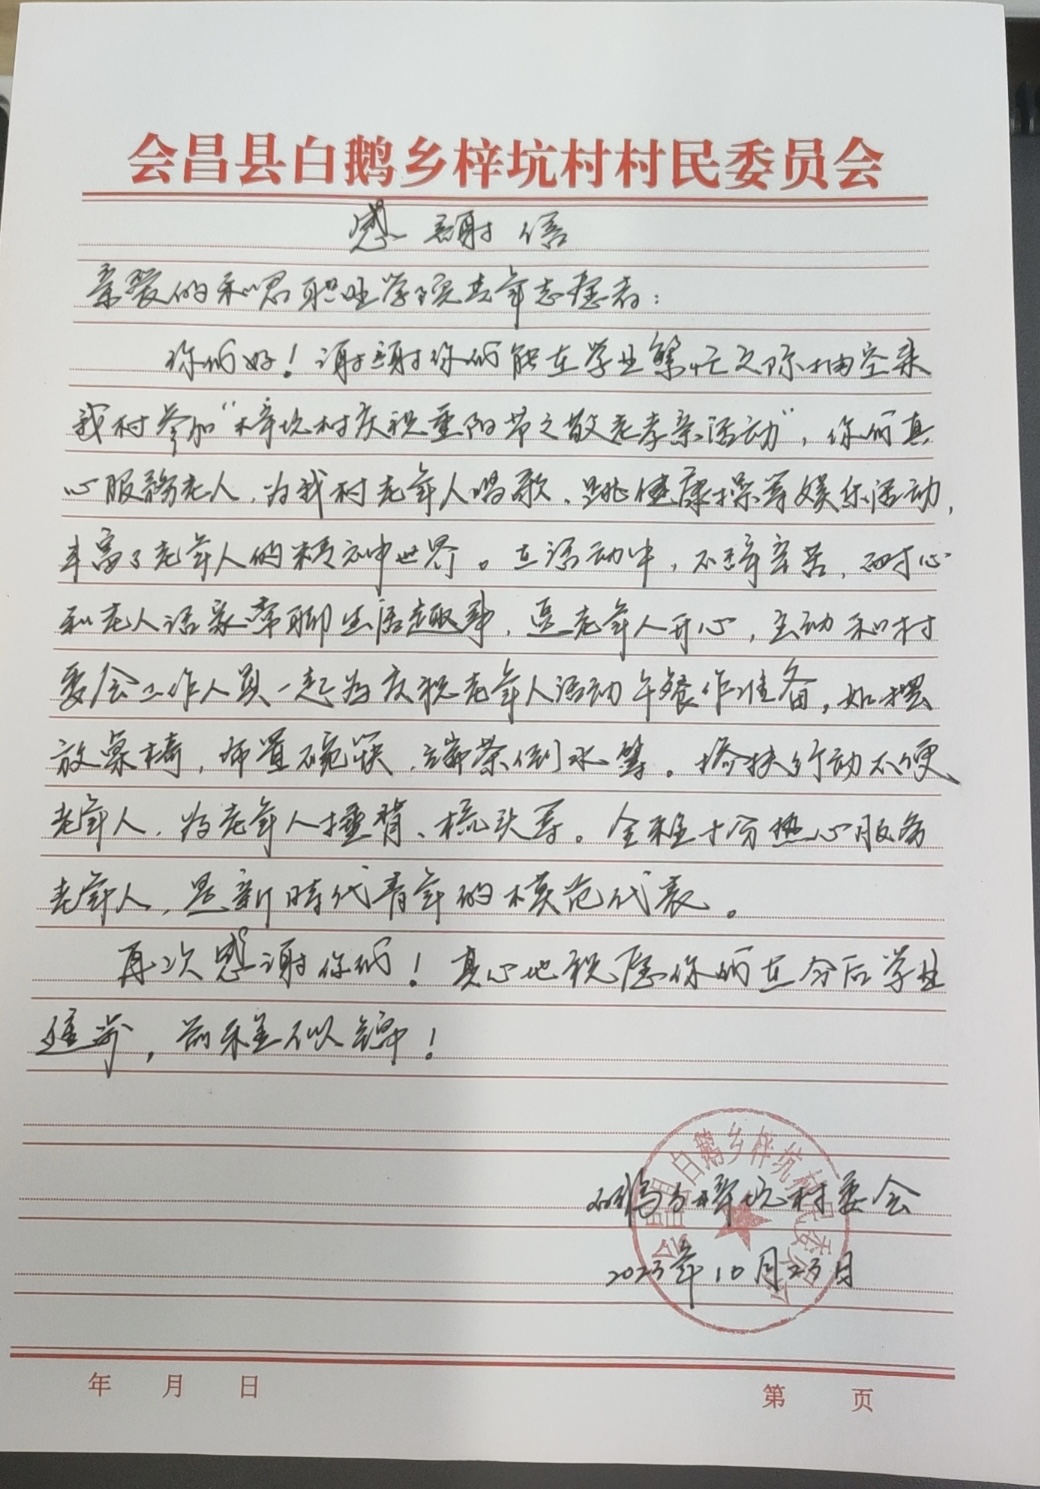 会昌县白鹅乡梓坑村村民委员会
感谢信
亲爱的和君职业学院青年志愿者：
你们好！谢谢你们能在学业繁忙之际抽空来
我村参加“梓坑村庆祝重阳节之敬老孝亲活动”，你们真
心服务老人，为我村老年人唱歌、跳健康操等娱乐活动，
丰富了老年人的精神世界。在活动中，不辞辛苦，耐心
和老人话家常聊生活趣事，逗老年人开心，主动和村
委会工作人员一起为庆祝老年人活动午餐作准备，如摆
放桌椅，布置碗筷，端茶倒水等。搀扶行动不便
老年人，为老年人捶背、梳头等。全程十分热心服务
老年人，是新时代青年的模范代表。
再次感谢你们！真心地祝愿你们在今后学业
进步，前程似锦！
白鹅乡梓坑村委会
2023年10月23日
会昌县白鹅乡梓坑村民委员会
年 月 日
第 页